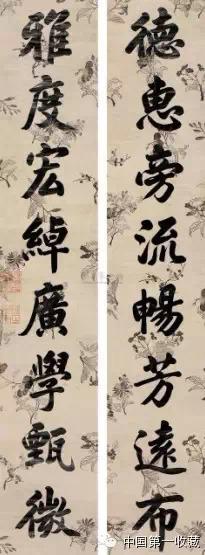 德惠旁流暢芳遠布
雅度宏綽廣學甄微
中国第一收藏